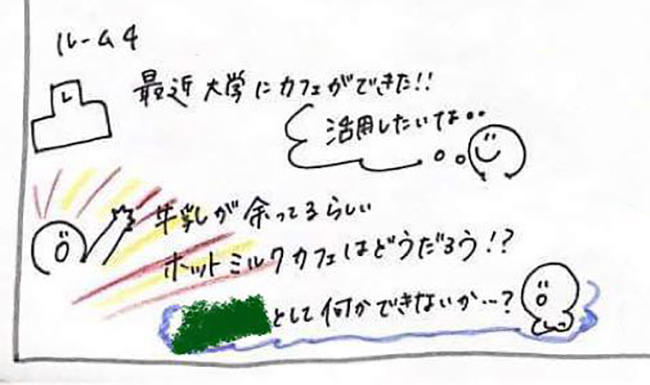 ルーム4
最近大学にカフェができた!!
活用したいな..
牛乳が余ってるらしい
ホットミルクカフェはどうだろう!?
として何かできないか…?